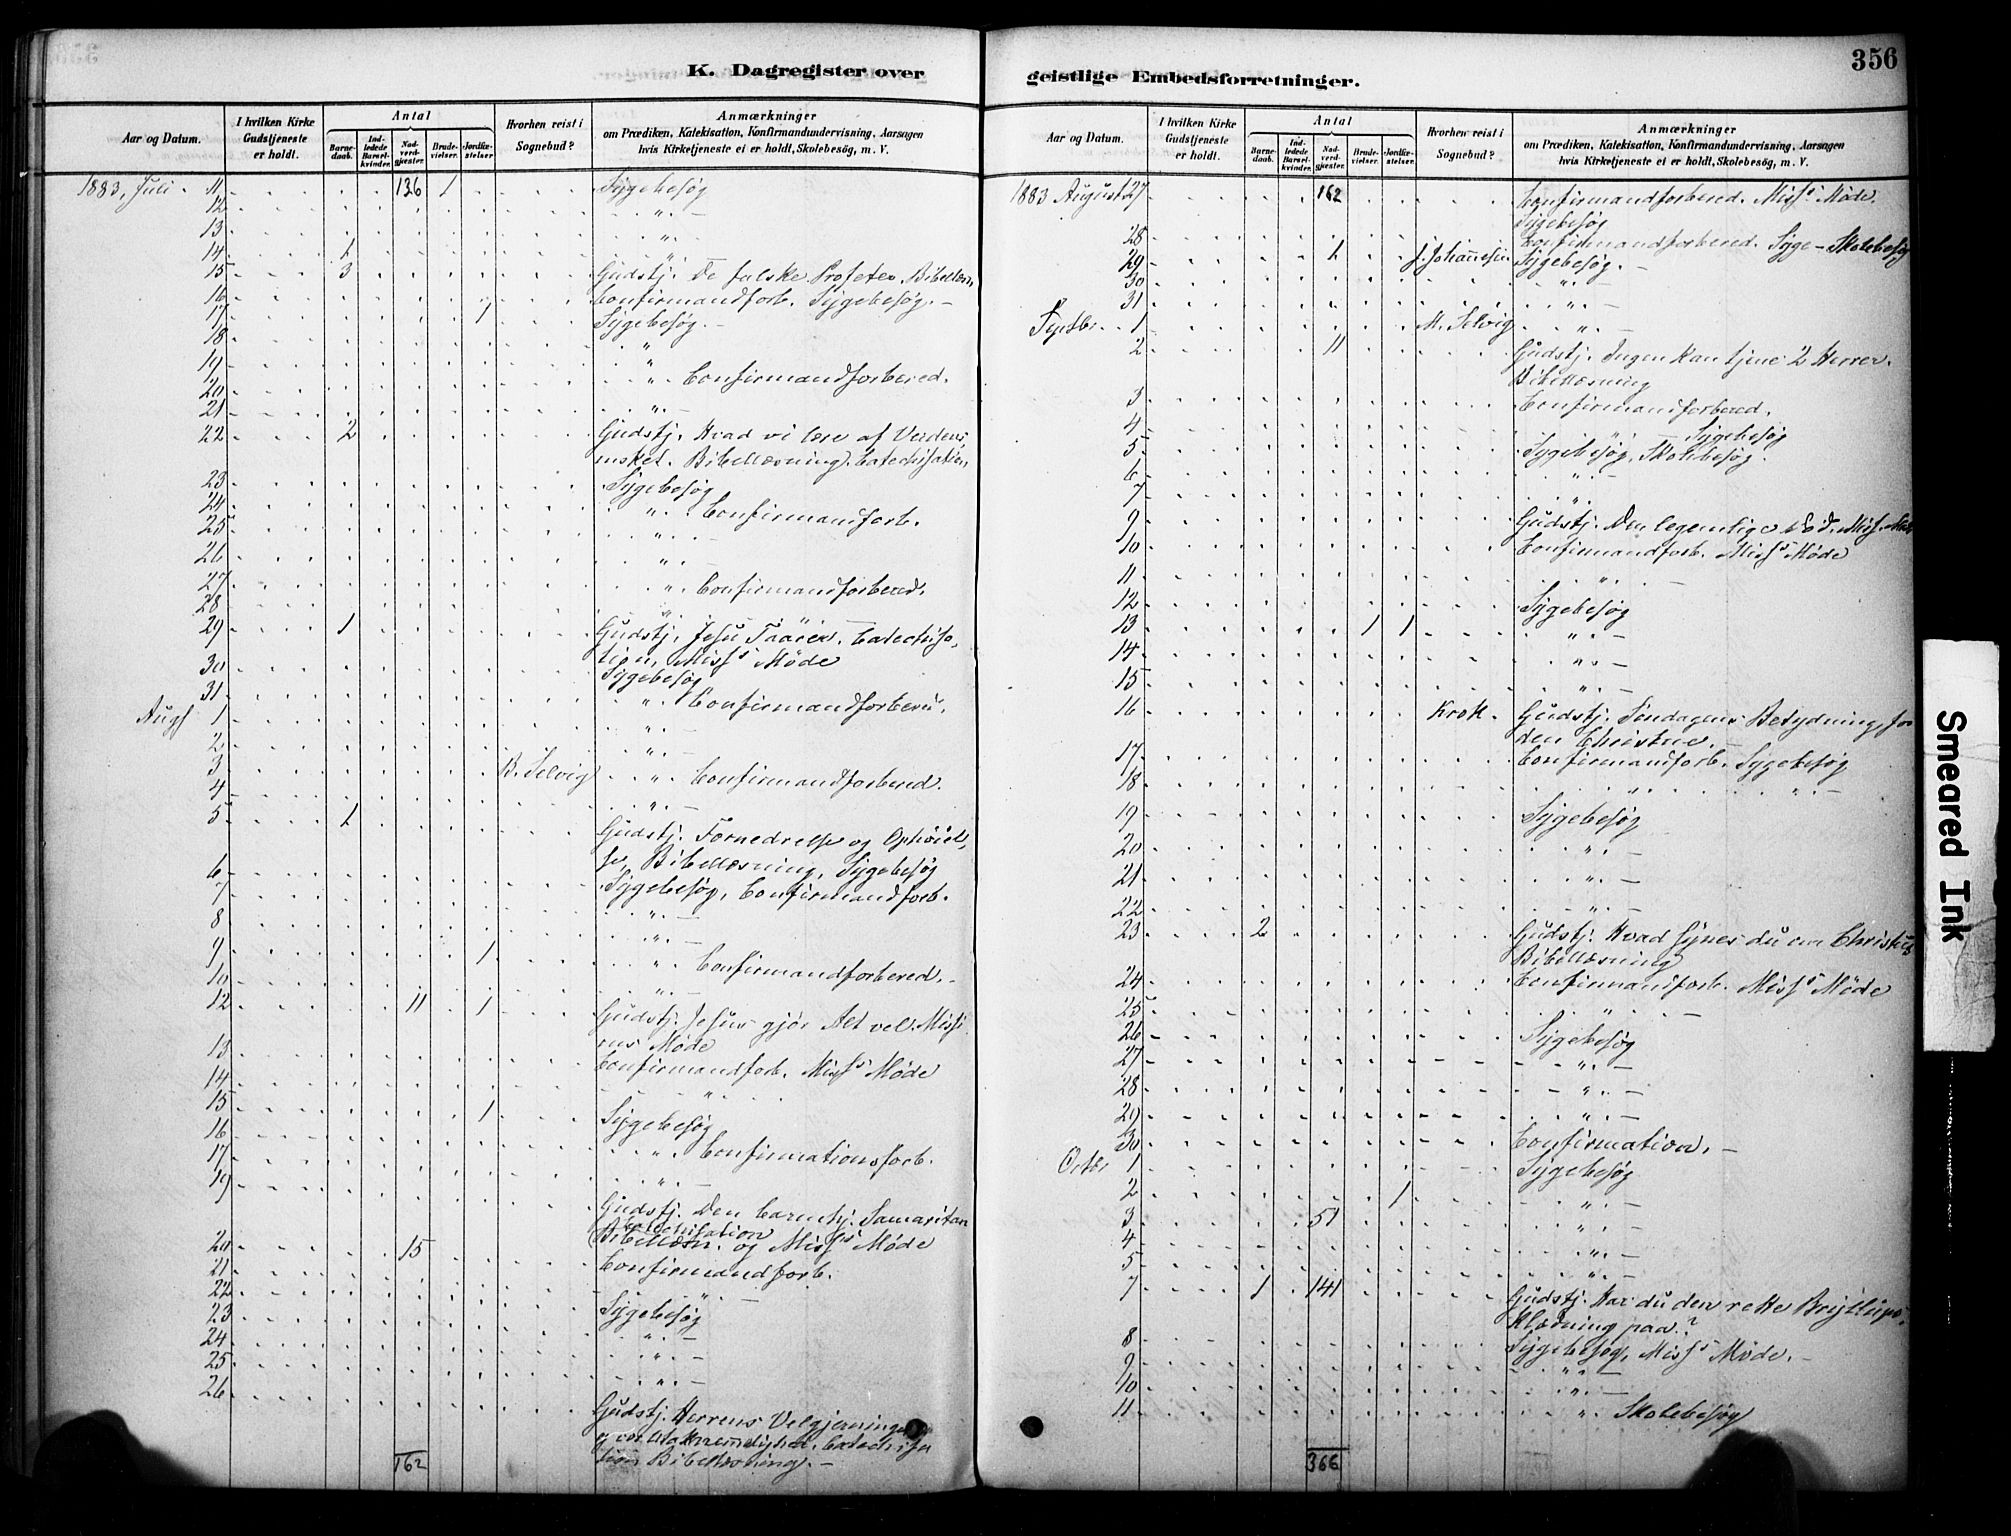 356
K. Dagregister over
Aar og Datum.
I hvilken Kirke Gudstjeneste er holdt.
Antal
Barne-daab.
Ind-ledede Barsel-kvinder.
Nad-verd-gjester.
Brude-vielser.
Jordfæ-stelser.
Hvorhen reist i Sognebud?
Anmærkninger
om Prædiken, Katekisation, Konfirmandundervisning, Aarsagen
hvis Kirketjeneste ei er holdt, Skolebesøg, m. V.
1883, Juli 11 136 1 Sygebesøg
12 " —
13 " .
14 1 "
15 3 Gudstj. De falske Profeter. Bibellæsn.
16 Confirmandforb. Sygebesøg. —
17 1 Sygebesøg. —
18 "
19 " Confirmandforbered.
20
21 " —
22 2 Gudstj. Hvad vi lære af Verdens
Bibellæsning. Catechisation.
23 Sygebesøg
24 " Confirmandforb.
25 " —
26 "
27 " Confirmandforbered.
28 "
29 1 Gudstj. Jesu Taarer. Catechisa-
tion, Miss's Møde
30 Sygebesøg
31 " Confirmandforbered.
Augs 1 " —
2 " —
3 B. Selvig " Confirmandforbered.
4 " —
5 1 Gudstj. Fornedrelse og Ophøiel-
se, Bibellæsning, Sygebesøg
6 Sygebesøg, Confirmandforb.
7 " —
8 " —
9 1 " Confirmandforbered. —
10 "
12 11 1 Gudstj. Jesus gjør Alt vel. Missi
ons Møde
13 Confirmandforb. Miss's Møde
14 "
15 1 Sygebesøg
16 " Confirmationsforb.
17 " —
19 Gudstj. Den barmhj. Samaritan
Catechisation
Bibellæsn. og Miss's Møde
20 15 Confirmandforb.
21 " —
22 Sygebesøg
23 " —
24 " —
25 " —
26 Gudstj. Herrens Velgjerninger
og vor Utaknemelighed. Catechisa
tion Bibellæsning. —
162
geistlige Embedsforretninger.
Aar og Datum.
I hvilken Kirke Gudstjeneste er holdt.
Antal
Barne-daab.
Ind-ledede Barsel-kvinder.
Nad-verd-gjester.
Brude-vielser.
Jordfæ-stelser.
Hvorhen reist i Sognebud?
Anmærkninger
om Prædiken, Katekisation, Konfirmandundervisning, Aarsagen
hvis Kirketjeneste ei er holdt, Skolebesøg, m. V.
1883 August 27 162 Confirmandforbered. Miss's Møde.
Sygebesøg
28 Confirmandforbered. Syge - Skolebesøg
29 1 J. Johannesen Sygebesøg. —
30 " —
31 " —
Septbr. 1 M. Selvig " —
2 11 Gudstj. Ingen kan tjene 2 Herrer.
Bibellæsning
3 Confirmandforbered.
4 " Sygebesøg
5 Sygebesøg, Skolebesøg.
6 " —
7 "
9 Gudstj. Den legemlige Død. Miss. Møde
10 Confirmandforb. Miss's Møde
11 " —
12 Sygebesøg
13 1 1 " —
14 " —
15 " —
16 Krok. Gudstj. Søndagens Betydning for
den Christne. —
17 Confirmandforb. Sygebesøg
18 " " —
19 Sygebesøg
20 " —
21 " —
22 " —
23 2 Gudstj. Hvad synes du om Christus
Bibellæsning
24 Confirmandforb. Miss's Møde
25 " —
26 Sygebesøg
27 " —
28 " —
29 " —
30 Confirmation. —
Octbr 1 Sygebesøg
2 1 " —
3 51 " —
4 " —
5 " —
7 1 141 Gudstj. Har du den rette Bryllups-
Klædning paa?
8 Sygebesøg, Miss's Møde. —
9 " —
10 " —
11 " Skolebesøg
366
Smeared Ink